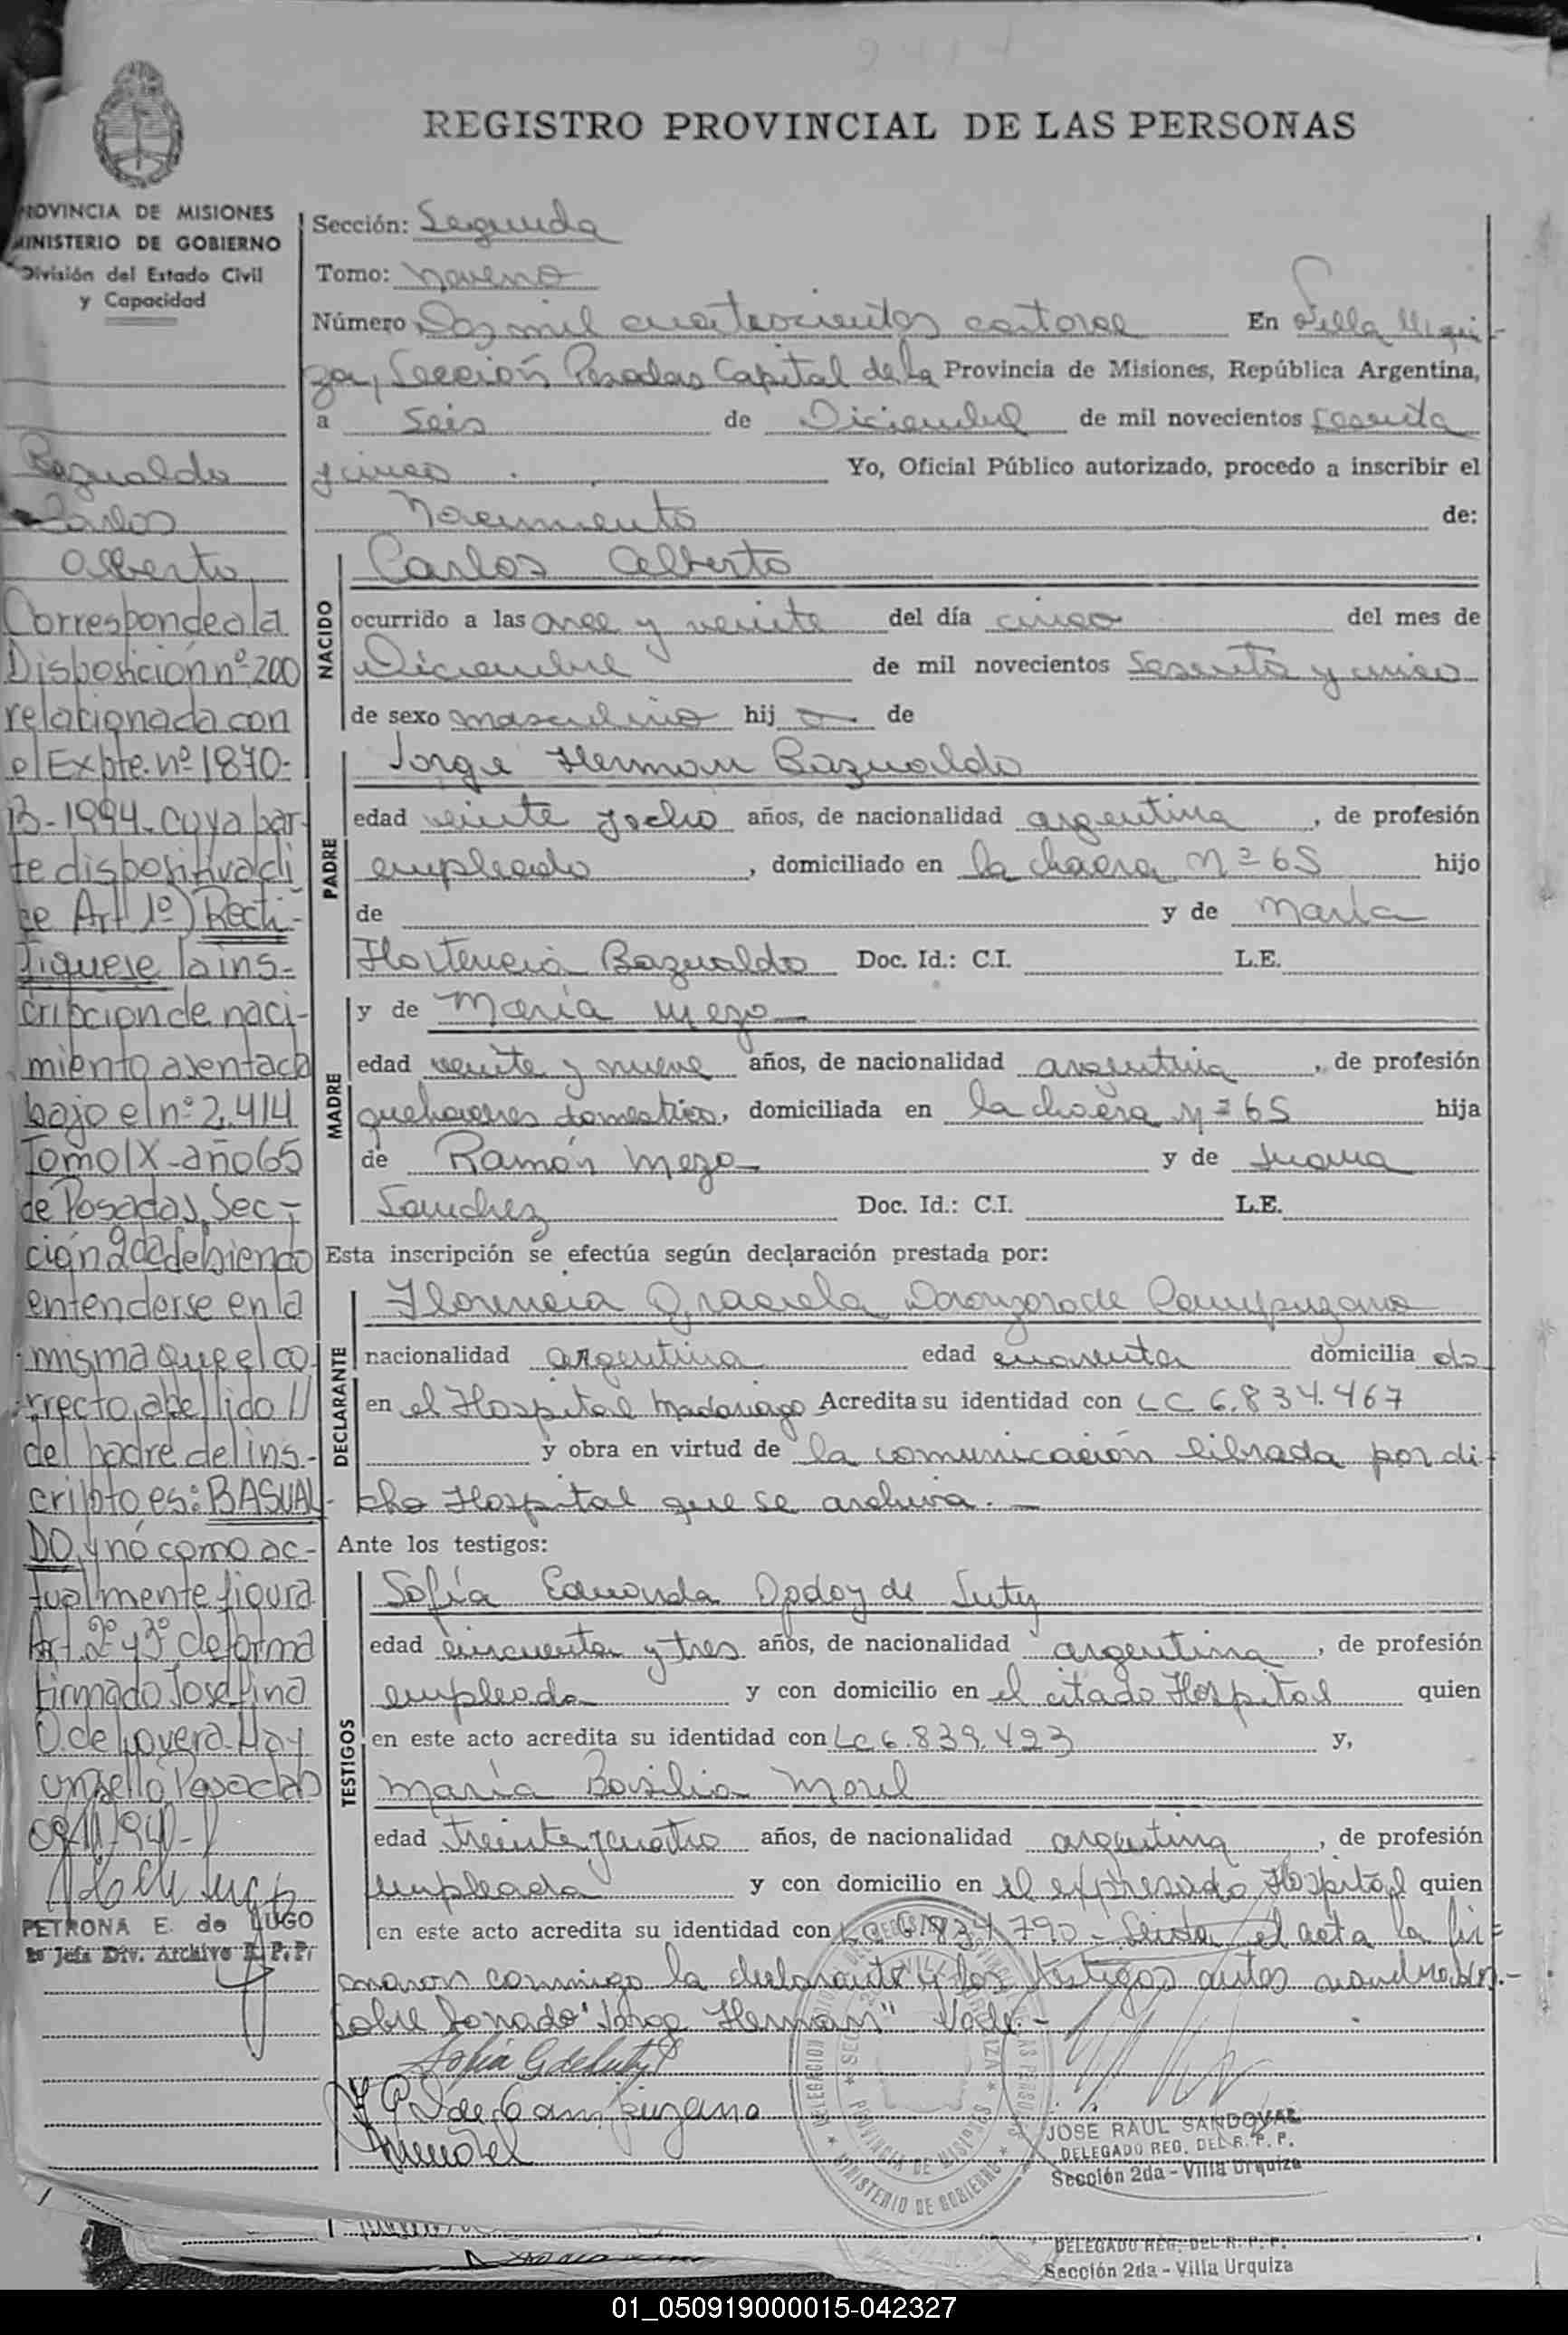 REGISTRO PROVINCIAL DE LAS PERSONAS
PROVINCIA DE MISIONES
MINISTERIO DE GOBIERNO
División del Estado Civil
y Capacidad
Bazualdo
Carlos
Alberto
Corresponde a la
Disposición nº 200
relacionada con
el Expte. nº 1870-
B-1994. cuya par-
te dispositiva di
ce Art 1º) Recti-
fíquese la ins-
cripción de naci-
miento asentada
bajo el nº 2.414
Tomo IX - año 65
de Posadas, Sec-
ción 2da debiendo
entenderse en la
misma que el co-
rrecto apellido //
del padre del ins-
cripto es: BASUAL-
DO, y nó como ac-
tualmente figura
Art. 2º y 3º de forma
firmado Josefina
D. de Lovera. Hay
un sello Posadas
09/11/94-
PETRONA E. de LUGO
Jefa Div. Archivo R. P. P.
Sección: Segunda
Tomo: Noveno
Número Dos mil cuatrocientos catorce En Villa Urqui-
za, Sección Posadas Capital de la Provincia de Misiones, República Argentina,
a seis de Diciembre de mil novecientos sesenta
y cinco Yo, Oficial Público autorizado, procedo a inscribir el
Nacimiento de:
NACIDO
Carlos Alberto
ocurrido a las once y veinte del día cinco del mes de
Diciembre de mil novecientos sesenta y cinco
de sexo masculino hij o de
PADRE
Jorge Herman Bazualdo
edad veinte y ocho años, de nacionalidad argentina, de profesión
empleado, domiciliado en la chacra Nº 65 hijo
de y de María
Hortencia Bazualdo Doc. Id.: C.I. L.E.
MADRE
y de María Meza
edad veinte y nueve años, de nacionalidad argentina, de profesión
quehaceres domestico, domiciliada en la chacra Nº 65 hija
de Ramón Meza y de Juana
Sanchez Doc. Id.: C.I. L.E.
Esta inscripción se efectúa según declaración prestada por:
DECLARANTE
Florencia Graciela de Campuzano
nacionalidad argentina edad cuarenta domicilia da
en el Hospital Madariaga Acredita su identidad con LC 6.834.467
y obra en virtud de la comunicación librada por di-
cho Hospital que se archiva.
Ante los testigos:
TESTIGOS
Sofía Edmunda Godoy de Luty
edad cincuenta y tres años, de nacionalidad argentina, de profesión
empleada y con domicilio en el citado Hospital quien
en este acto acredita su identidad con LC 6.839.423 y,
María Basilia Morel
edad treinta y cuatro años, de nacionalidad argentina, de profesión
empleada y con domicilio en el expresado Hospital quien
en este acto acredita su identidad con LC 6.834.790 - Leida el acta la fir-
maron conmigo la declarante y los testigos antes nombrados.-
Sobre borrado "Jorge Herman" Vale.-
Sofia G de Luty
de Campuzano
Morel
DELEGACION
PROVINCIA DE MISIONES
MINISTERIO DE GOBIERNO
JOSE RAUL SANDOVAL
DELEGADO REG. DEL R. P. P.
Sección 2da - Villa Urquiza
DELEGADO REG. DEL R. P. P.
Sección 2da - Villa Urquiza
01_050919000015-042327